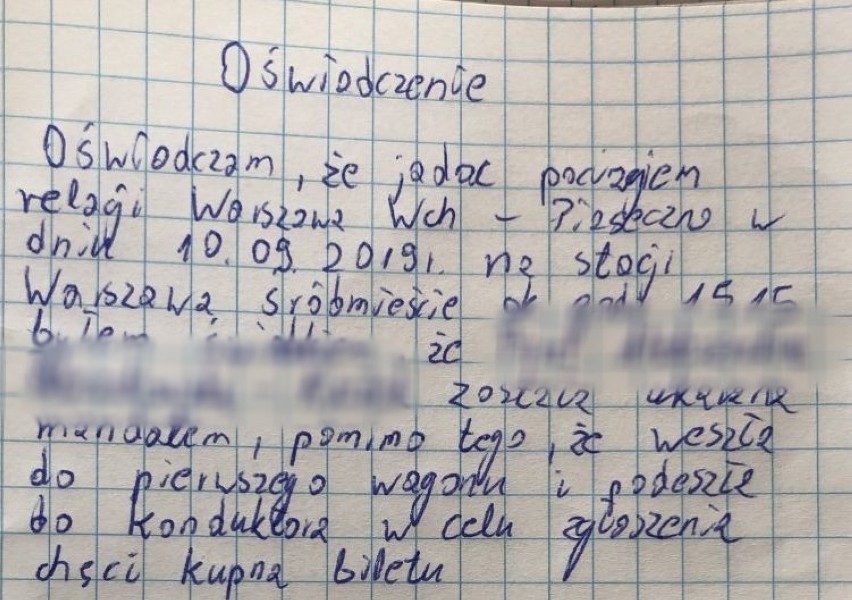 Oświadczenie
Oświadczam, że jadąc pociągiem
relacji Warszawa Wch - Piaseczno w
dniu 10.09.2019r. na stacji
Warszawa Śródmieście ok godz 15.15
byłem że
została ukarana
mandatem, pomimo tego, że weszła
do pierwszego wagonu i podeszła
do konduktora w celu zgłoszenia
chęci kupna biletu